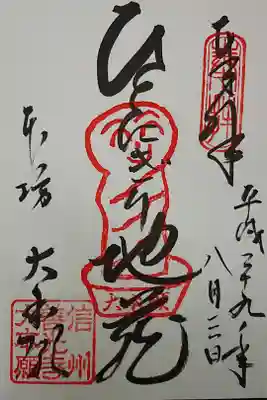 平成二十九年
八月二日
ひとにぎり地蔵
本坊
大本願
信州
善光寺
大本願